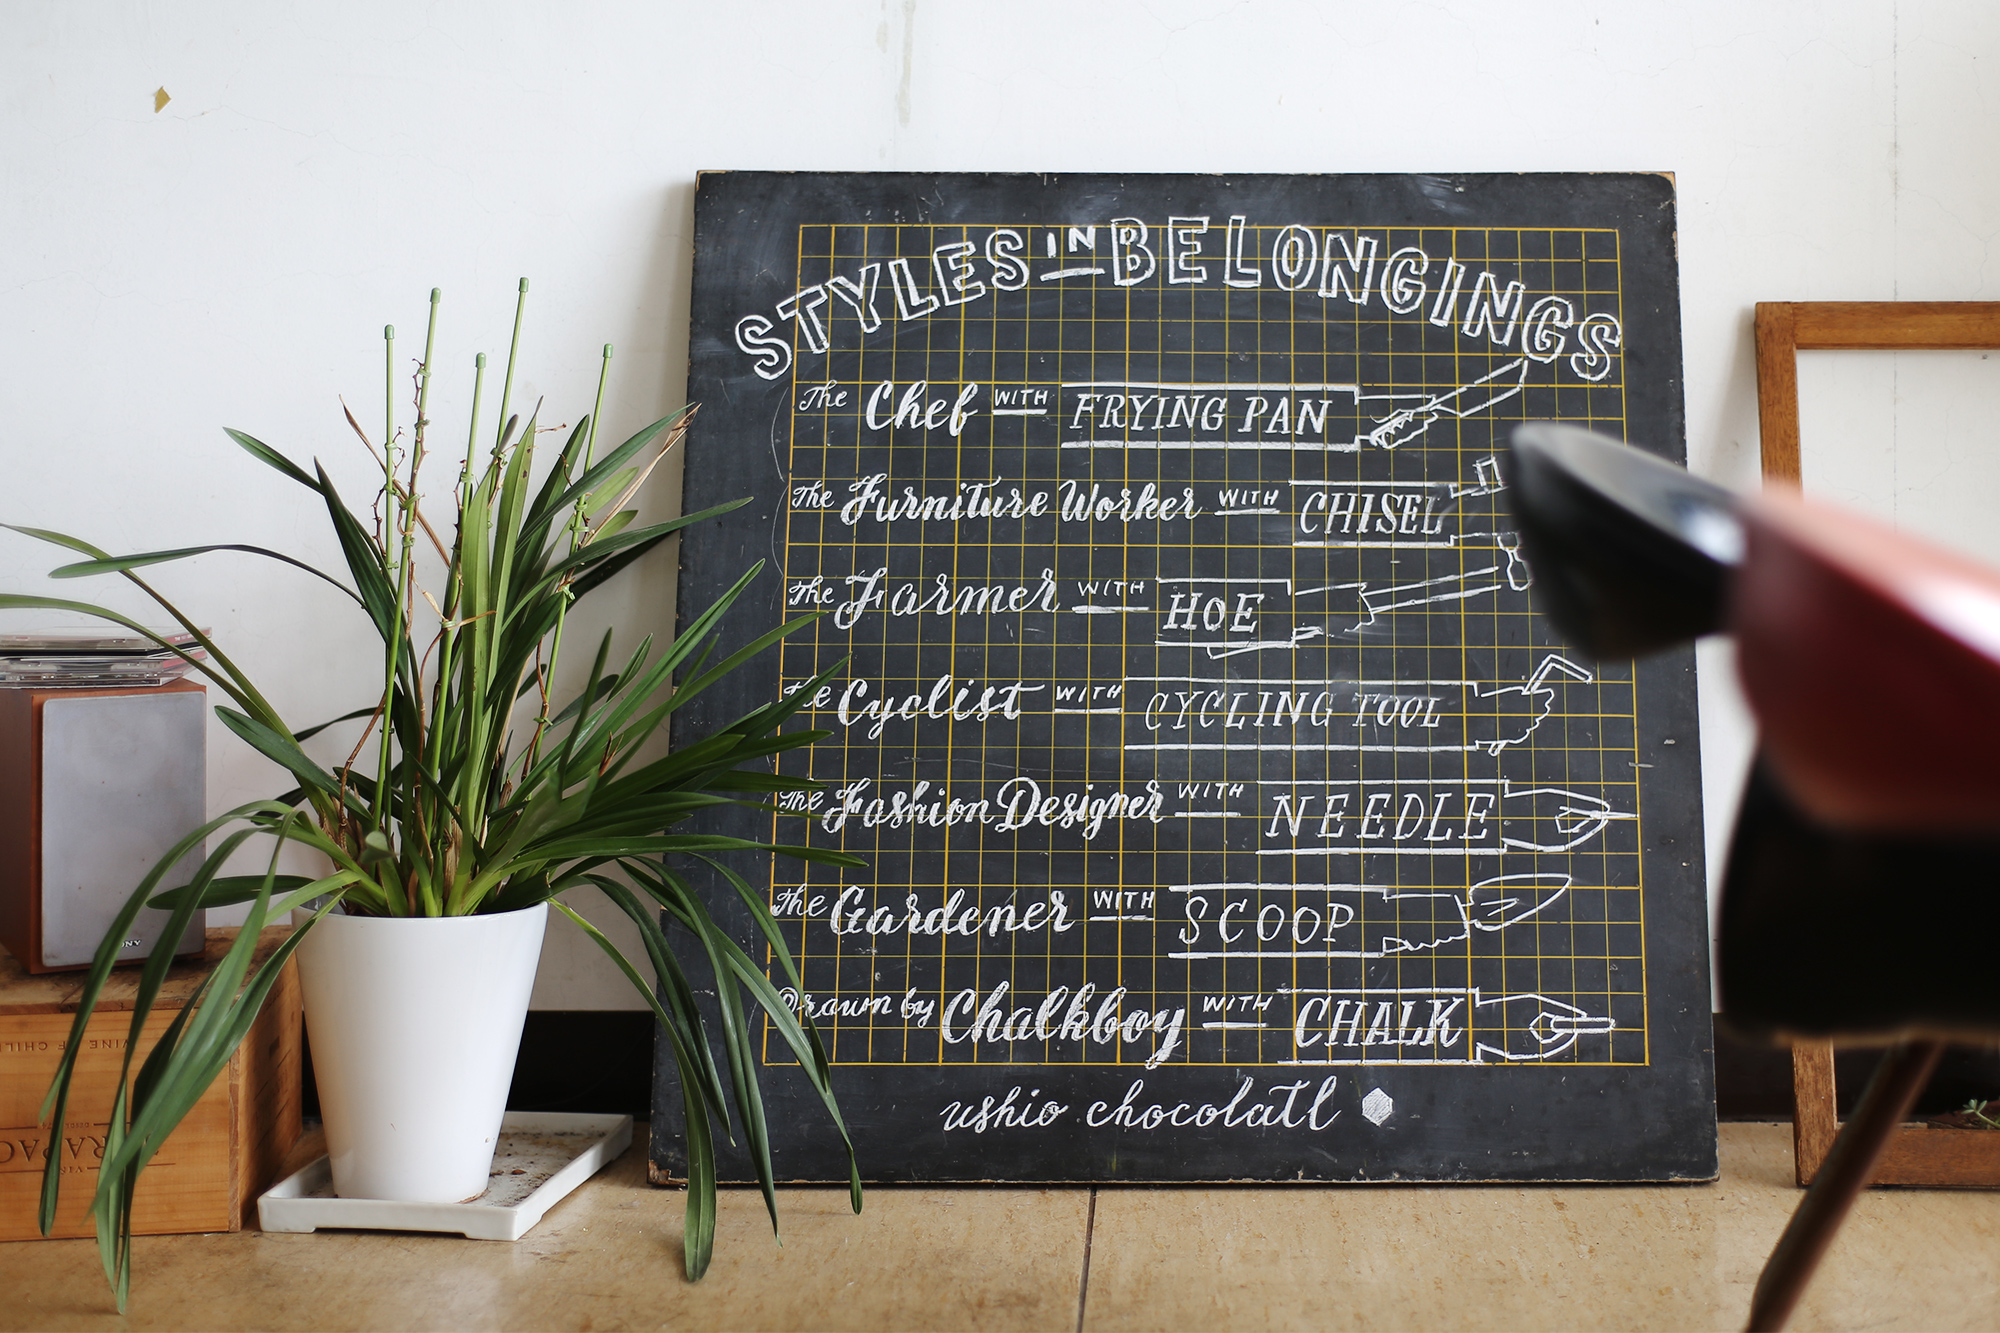 STYLES IN BELONGINGS
The Chef WITH FRYING PAN
The Furniture Worker WITH CHISEL
The Farmer WITH HOE
the Cyclist WITH CYCLING TOOL
The Fashion Designer WITH NEEDLE
The Gardener WITH SCOOP
Drawn by Chalkboy WITH CHALK
ushio chocolatl
SONY